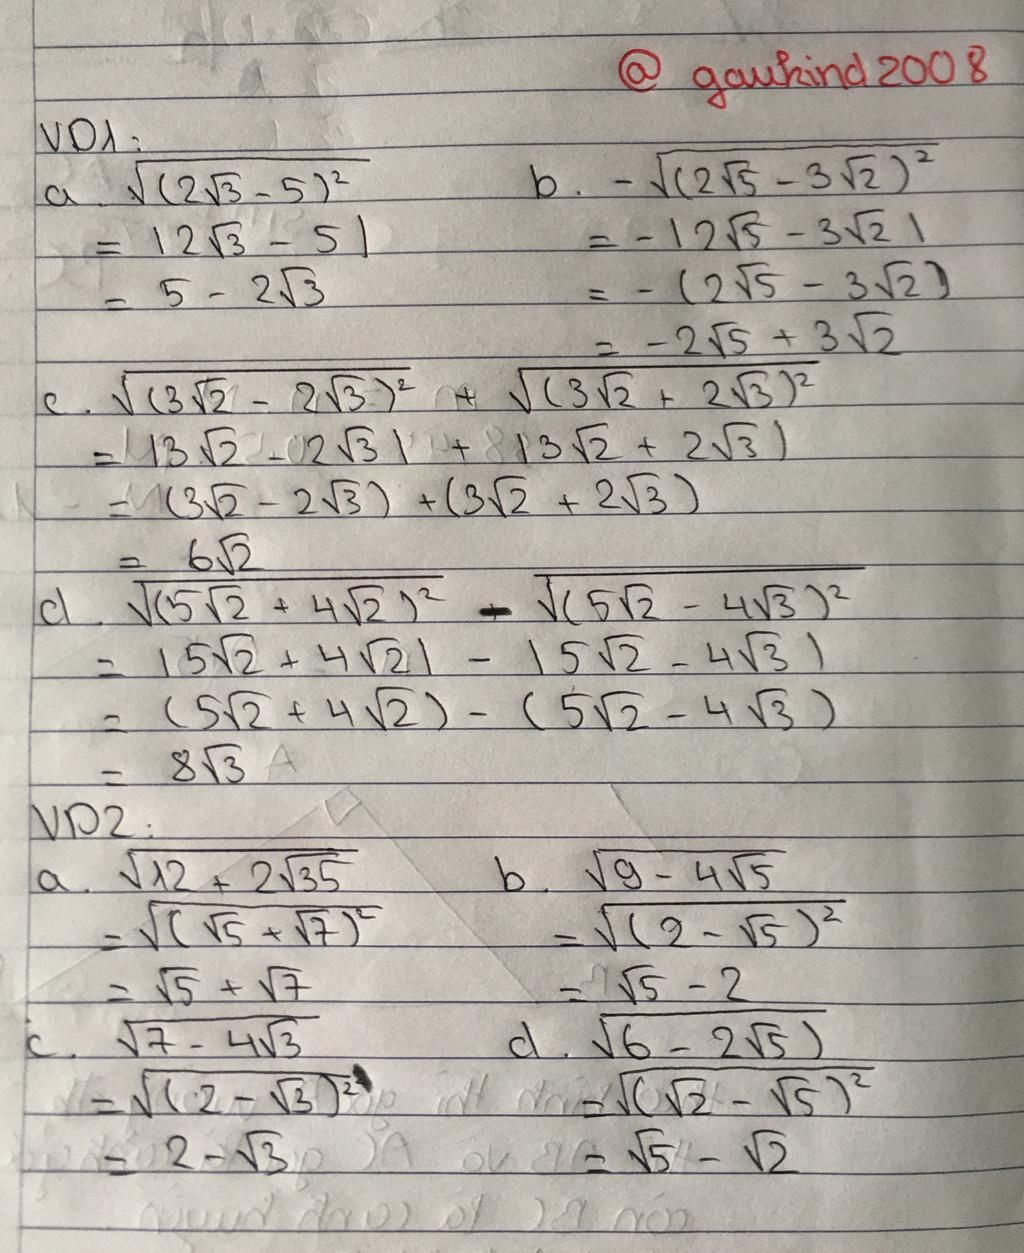 @ gaukind2008
VD1:
a. √(2√3 - 5)² b. -√(2√5 - 3√2)²
= |2√3 - 5| = -|2√5 - 3√2|
= 5 - 2√3 = -(2√5 - 3√2)
= -2√5 + 3√2
c. √(3√2 - 2√3)² + √(3√2 + 2√3)²
= |3√2 - 2√3| + |3√2 + 2√3|
= (3√2 - 2√3) + (3√2 + 2√3)
= 6√2
d. √(5√2 + 4√2)² - √(5√2 - 4√3)²
= |5√2 + 4√2| - |5√2 - 4√3|
= (5√2 + 4√2) - (5√2 - 4√3)
= 8√3
VD2:
a. √12 + 2√35 b. √9 - 4√5
= √(√5 + √7)² = √(2 - √5)²
= √5 + √7 = √5 - 2
c. √7 - 4√3 d. √6 - 2√5)
= √(2 - √3)² = √(√2 - √5)²
= 2 - √3 = √5 - √2